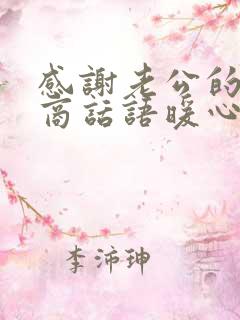 感謝老公的
商話語暖心
李沛珅